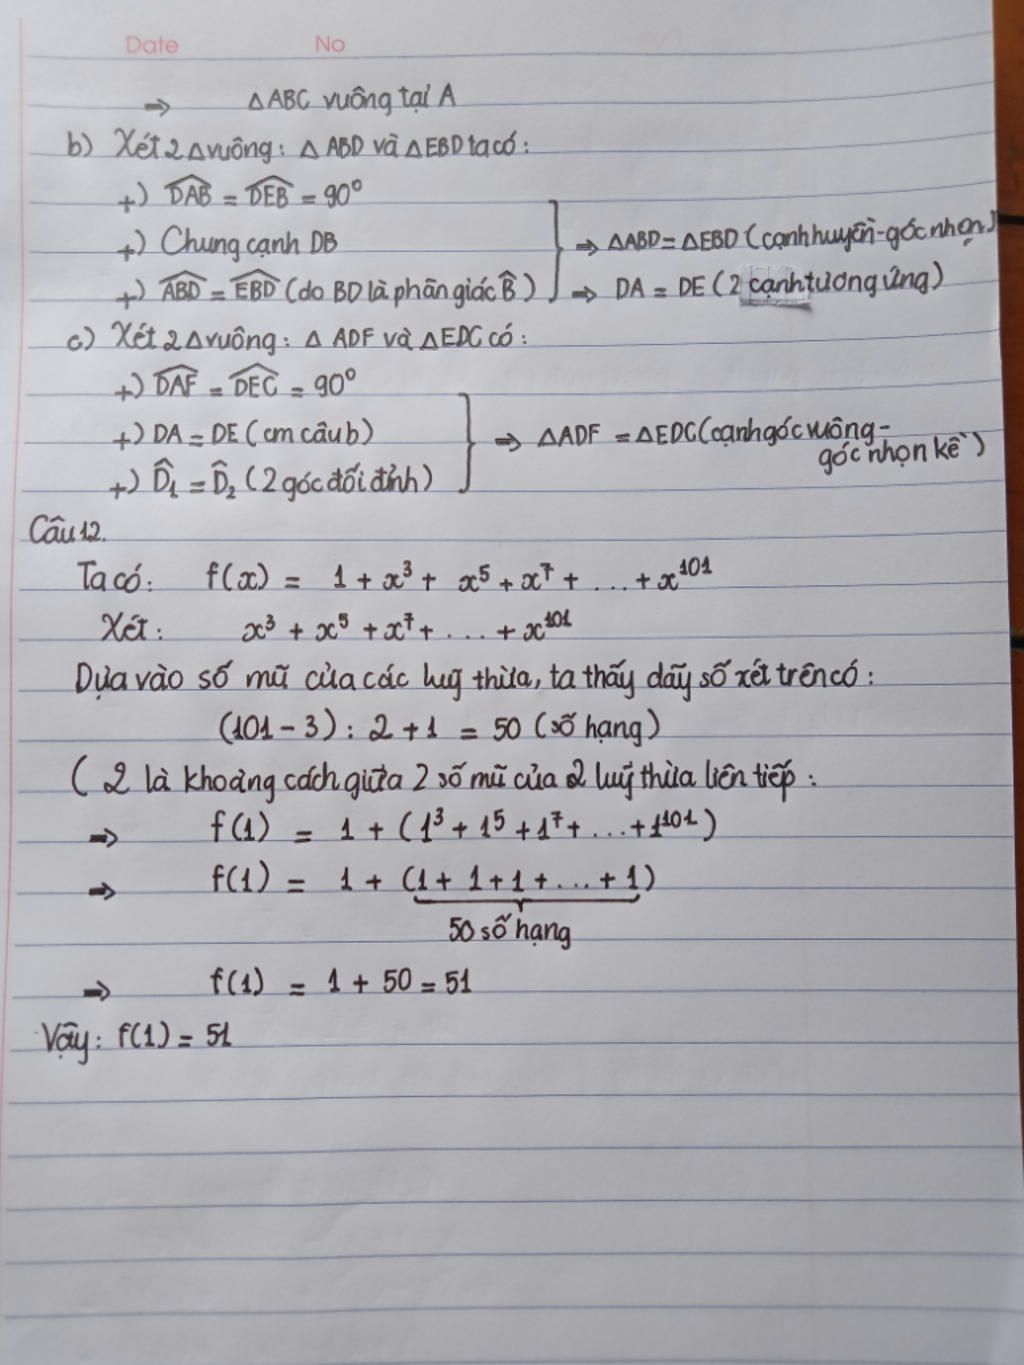 Date No
⇒ △ABC vuông tại A
b) Xét 2△vuông: △ ABD và △EBD ta có:
+) \widehat{DAB} = \widehat{DEB} = 90°
+) Chung cạnh DB
⇒ △ABD = △EBD (cạnh huyền - góc nhọn)
+) \widehat{ABD} = \widehat{EBD} (do BD là phân giác \widehat{B})
⇒ DA = DE (2 cạnh tương ứng)
c) Xét 2△vuông: △ ADF và △EDC có:
+) \widehat{DAF} = \widehat{DEC} = 90°
+) DA = DE (cm câu b)
⇒ △ADF = △EDC (cạnh góc vuông -
góc nhọn kề)
+) \widehat{D}₁ = \widehat{D}₂ (2 góc đối đỉnh)
Câu 12.
Ta có: f(x) = 1 + x³ + x⁵ + x⁷ + ... + x¹⁰¹
Xét: x³ + x⁵ + x⁷ + ... + x¹⁰¹
Dựa vào số mũ của các luỹ thừa, ta thấy dãy số xét trên có:
(101 - 3) : 2 + 1 = 50 (số hạng)
( 2 là khoảng cách giữa 2 số mũ của 2 luỹ thừa liên tiếp :
⇒ f(1) = 1 + (1³ + 1⁵ + 1⁷ + ... + 1¹⁰¹)
⇒ f(1) = 1 + (1 + 1 + 1 + ... + 1)
50 số hạng
⇒ f(1) = 1 + 50 = 51
Vậy: f(1) = 51